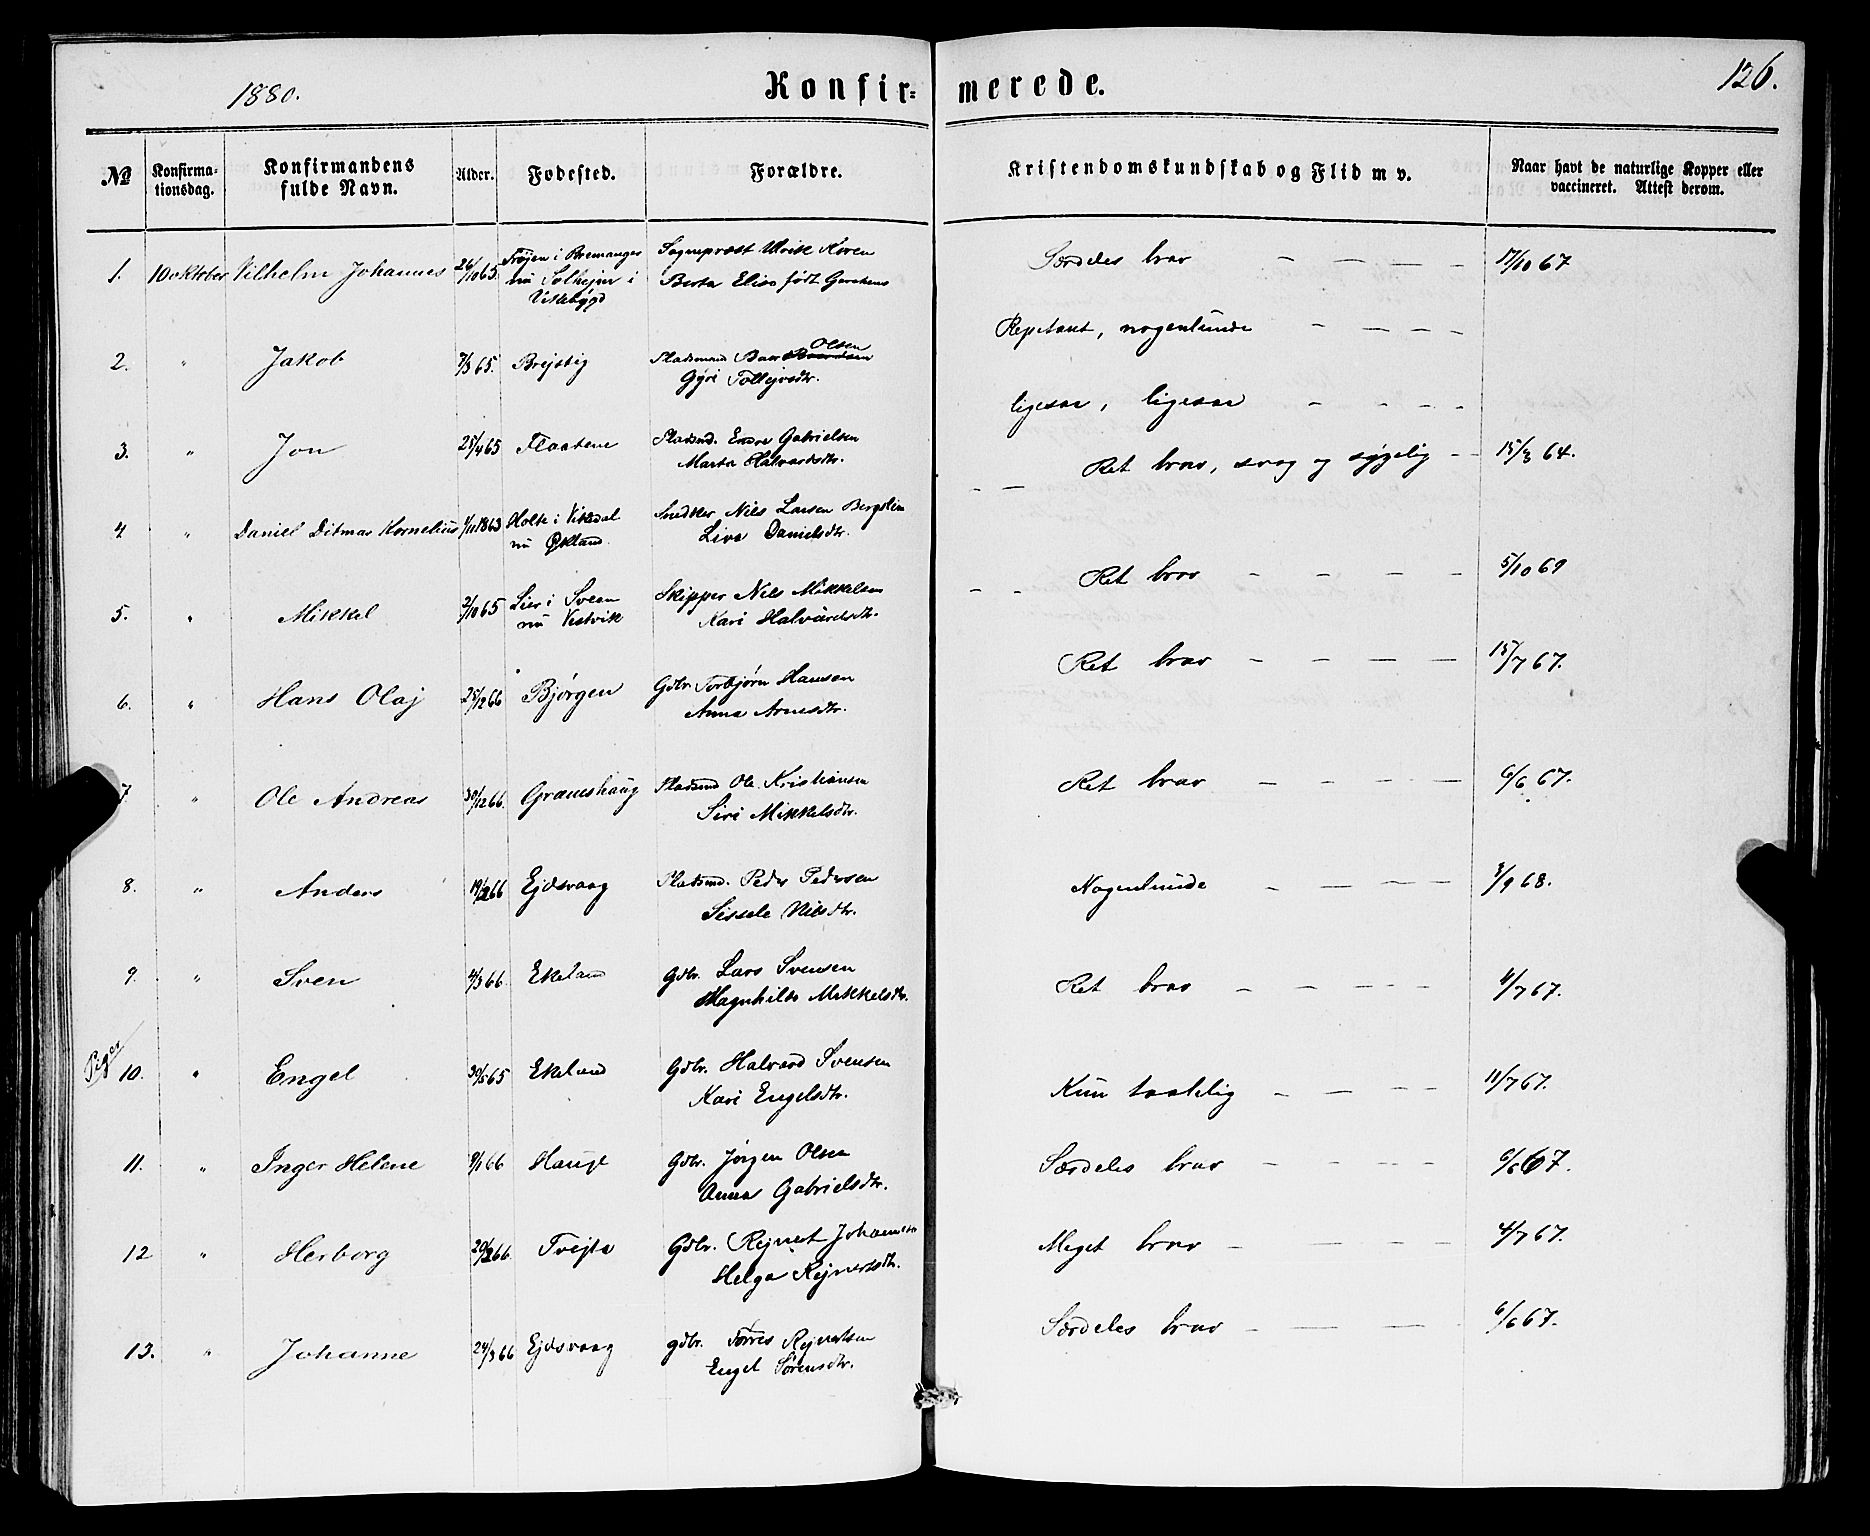 1880.
Konfir= merede.
126.
№ Konfirma-tionsdag. Konfirmandens fulde Navn. Alder. Fødested. Forældre. Kristendomskundskab og Flid m v. Naar havt de naturlige Kopper eller vaccineret. Attest derom.
1. 10 oktober Vilhelm Johannes 26/10 65. Frøjen i Bremanger Sognepræst Ulrik Koren Særdeles brav — — — — 17/10 67
nu Solhejm i Berta Elisa født
Vikebygd
2. " Jakob 7/3 65. Brejstig Pladsmand Baar Olsen Repetant, nogenlunde — — — —
Gyri Tollejvsdtr.
3. " Jon 25/4 65 Flaatene Pladsmd. Endre Gabrielsen ligesaa, ligesaa — — — —
Marta Halvardsdtr.
4 " Daniel Ditmar Kornelius 1/11 1863 Holte i Vikedal Snedker Nils Larsen Bergslien — — Ret brav, svag og sygelig — — 15/3 64.
nu Økland. Liva Danielsdtr.
5. " Mikkel 2/10 65 Lier i Sveen Skipper Nils Mikkelsen — — Ret brav — — — — 5/10 69
nu Vestvik Kari Halvardsdtr.
6. " Hans Olaj 25/12 66 Bjørgen Gdbr. Torbjørn Hansen Ret brav — — — — 15/7 67.
Anna Arnesdtr.
7. " Ole Andreas 30/12 66. Graueshaug Pladsmd Ole Kristiansen Ret brav — — — — 6/6 67.
Siri Mikkelsdtr.
8. " Anders 19/2 66 Ejdsvaag Pladsmd. Peder Pedersen Nogenlunde — — — — 3/9 68.
Sissele Nilsdtr.
9. " Sven 4/3 66. Ekeland Gdbr. Lars Svensen Ret brav — — — — 4/7 67.
Magnhilda Mikkelsdtr.
Piger
10. " Engel 30/5 65 Ekeland Gdbr. Halvard Svensen Kun taalelig — — — — 11/7 67.
Kari Engelsdtr.
11. " Inger Helene 9/1 66 Hauge Gdbr. Jørgen Olsen Særdeles brav — — — — 6/6 67.
Anna Gabrielsdtr.
12 " Herborg 20/2 66. Tvejta Gdbr. Rejnert Johannesen Meget brav — — — — 4/7 67.
Helga Rejnertsdtr.
13. " Johanne 24/3 66 Ejdsvaag gdbr. Tørres Rejnertsen Særdeles brav — — — — 6/6 67.
Engel Sørensdtr.